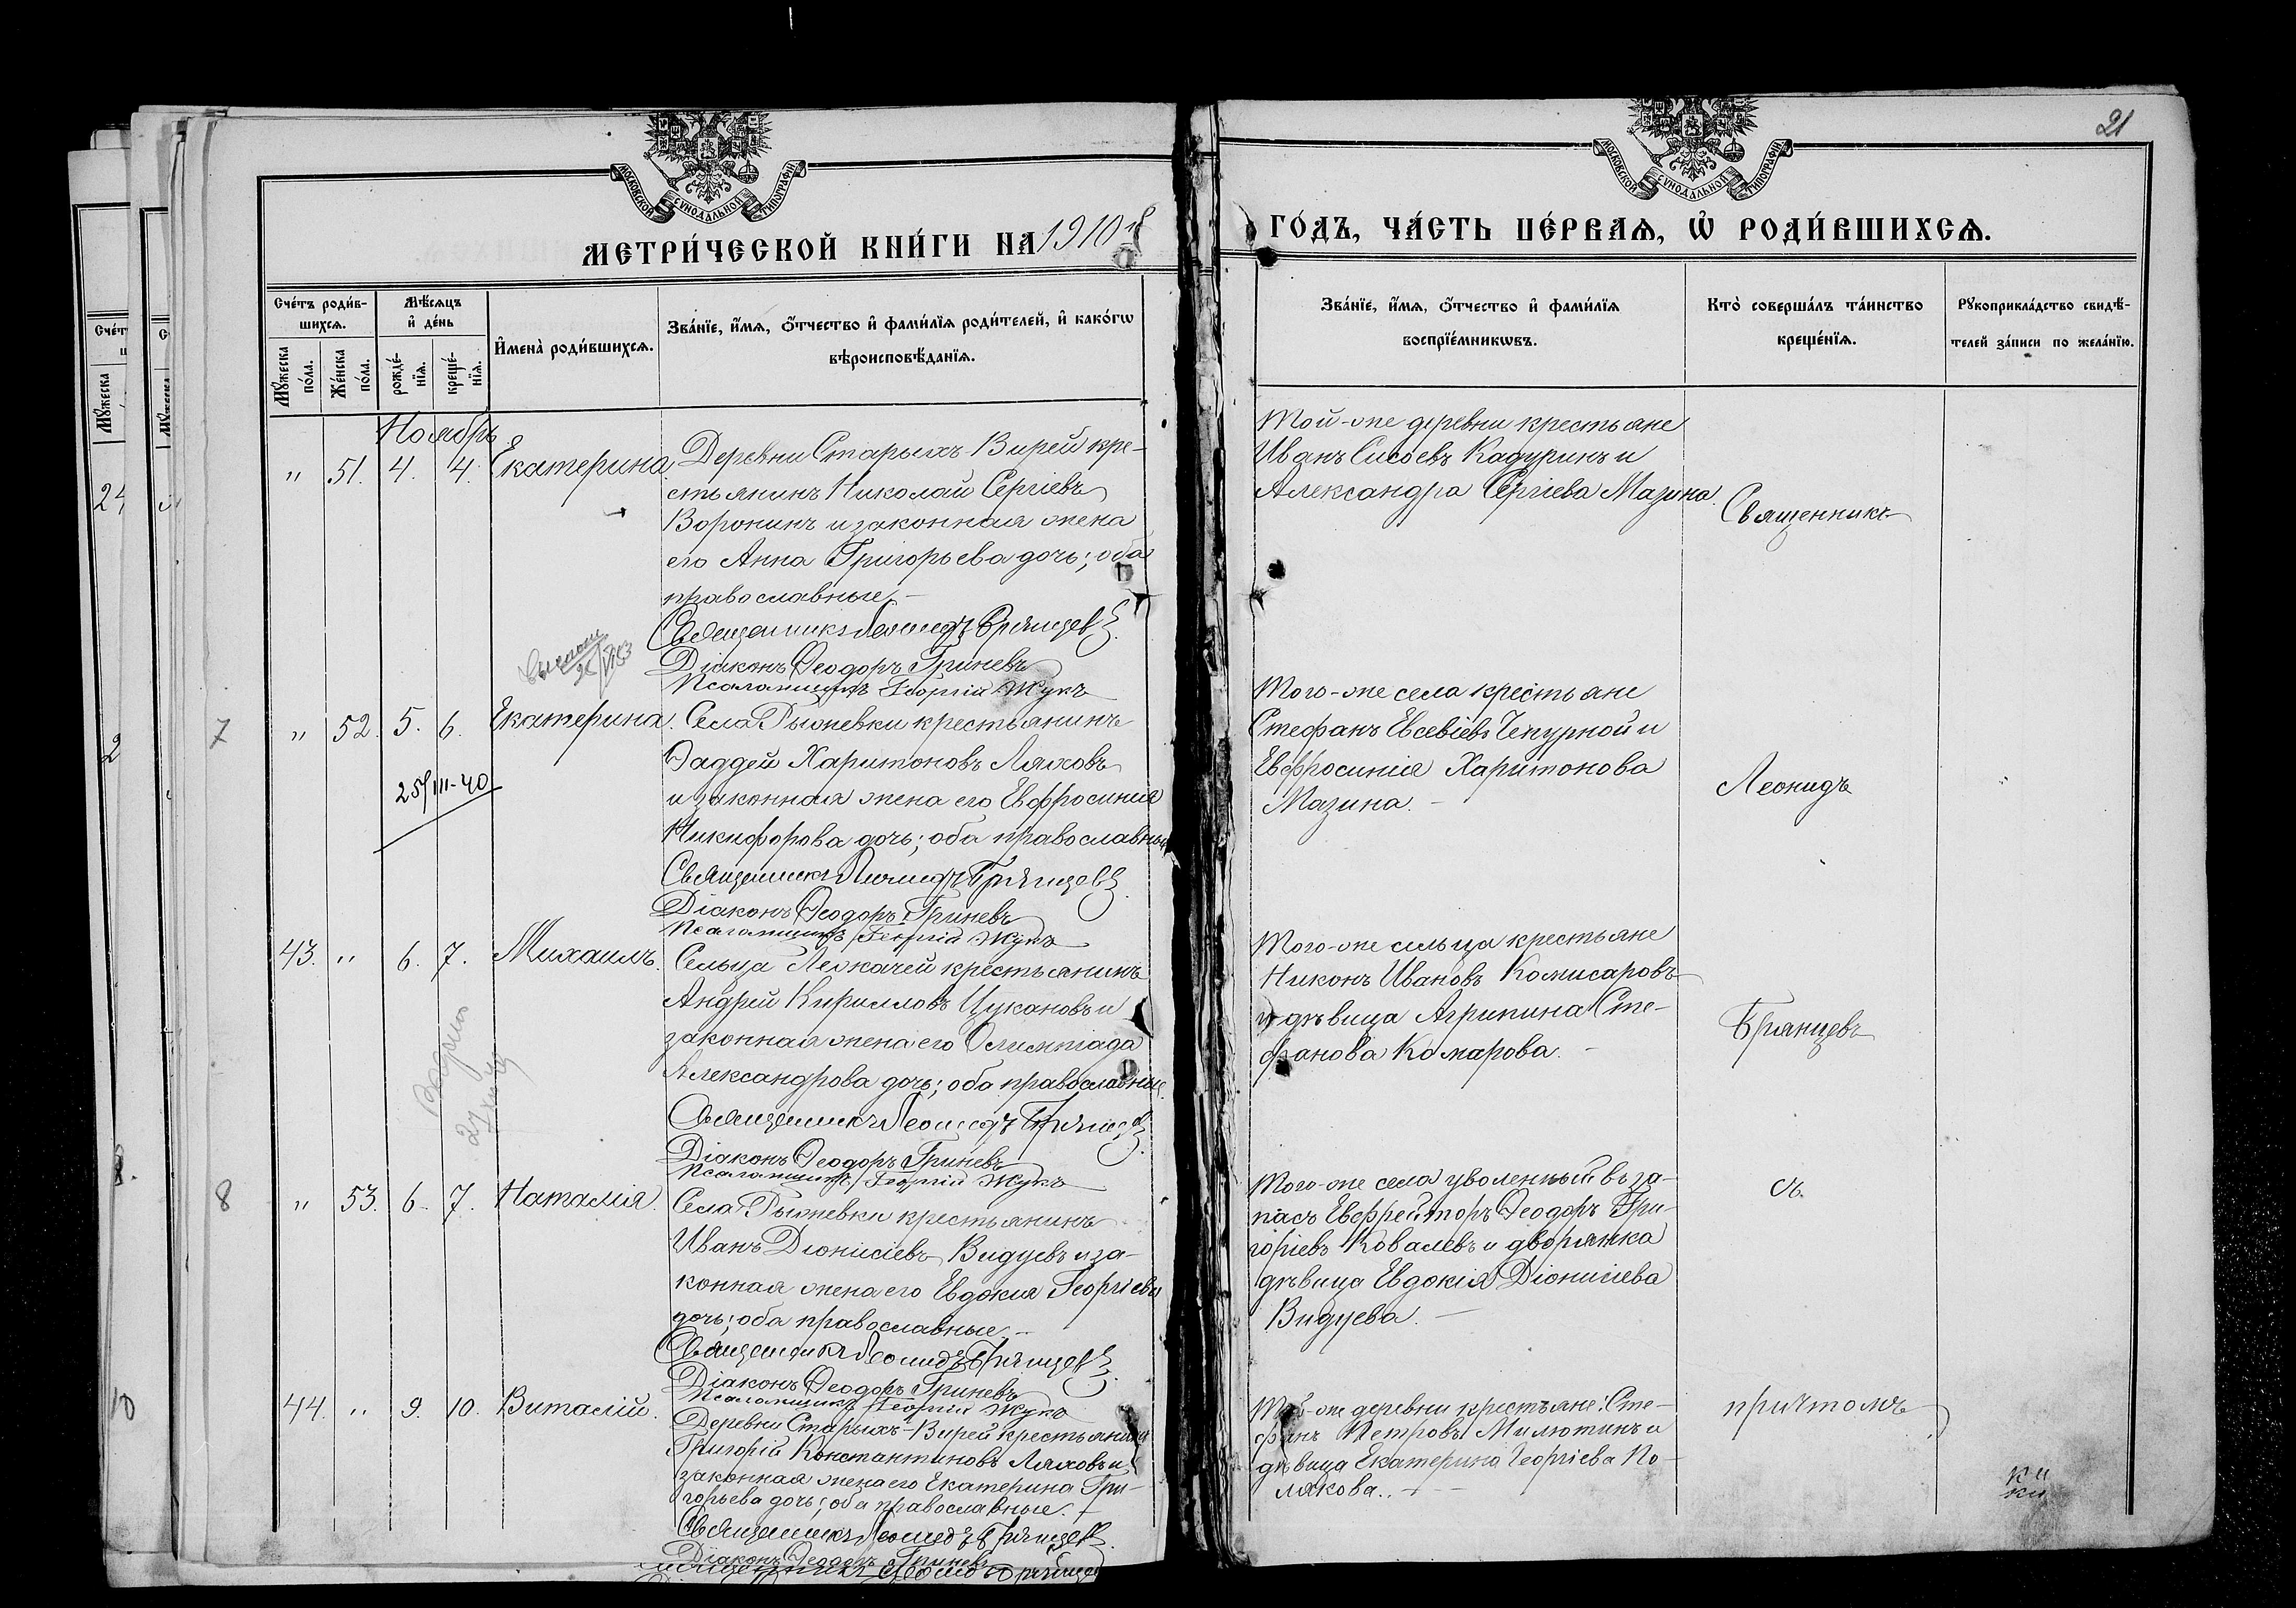 21
МОСКОВСКОЙ СѴНОДАЛЬНОЙ ТИПОГРАФІИ
МОСКОВСКОЙ СѴНОДАЛЬНОЙ ТИПОГРАФІИ
МЕТРИ́ЧЕСКОЙ КНИ́ГИ НА 1910й
ГО́ДЪ, ЧА́СТЬ ПЕ́РВАѦ, Ѡ҆ РОДИ́ВШИХСѦ.
Сче́тъ роди́в-
шихсѧ.
Мꙋ́жеска
по́ла.
Же́нска
по́ла.
Мѣ́сѧцъ
и҆ де́нь
рожде́-
нїѧ.
креще́-
нїѧ.
И҆мена̀ роди́вшихсѧ.
Зва́нїе, и҆́мѧ, ѻ҆́тчество и҆ фами́лїѧ роди́телей, и҆ како́гѡ
вѣроисповѣ́данїѧ.
Зва́нїе, и҆́мѧ, ѻ҆́тчество и҆ фами́лїѧ
воспрїе́мникѡвъ.
Кто̀ соверша́лъ та́инство
креще́нїѧ.
Рꙋкоприкла́дство свидѣ́-
телей за́писи по жела́нїю.
Ноябрь
" 51. 4. 4. Екатерина.
Деревни Старыхъ-Вирей кре-
стьянинъ Николай Сергіевъ
Воронинъ и законная жена
его Анна Григорьева дочь; оба
православные. –
Священникъ Леонидъ Брянцевъ.
Діаконъ Ѳеодоръ Гриневъ
Псаломщикъ Георгій Жукъ
Той-же деревни крестьяне
Иванъ Сисоевъ Кадуринъ и
Александра Сергіева Мазина.
Священникъ
7
" 52. 5. 6. Екатерина.
25/III-40
Села Рыжевки крестьянинъ
Ѳаддей Харитоновъ Ляховъ
и законная жена его Евфросинія
Никифорова дочь; оба православные
Священникъ Леонидъ Брянцевъ.
Діаконъ Ѳеодоръ Гриневъ
Псаломщикъ Георгій Жукъ
Того-же села крестьяне
Стефанъ Евсевіевъ Чепурной и
Евфросинія Харитонова
Мазина. –
Леонидъ
43. " 6. 7. Михаилъ.
Сельца Лескачей крестьянинъ
Андрей Кирилловъ Цукановъ и
законная жена его Олимпіада
Александрова дочь; оба православные.
Священникъ Леонидъ Брянцевъ.
Діаконъ Ѳеодоръ Гриневъ
Псаломщикъ Георгій Жукъ
Того-же сельца крестьяне
Никонъ Ивановъ Комисаровъ
и дѣвица Агрипина Сте-
фанова Комарова. –
Брянцевъ
8
" 53. 6. 7. Наталія.
Села Рыжевки крестьянинъ
Иванъ Діонисіевъ Видуевъ и за-
конная жена его Евдокія Георгіева
дочь; оба православные. –
Священникъ Леонидъ Брянцевъ.
Діаконъ Ѳеодоръ Гриневъ
Псаломщикъ Георгій Жукъ
Того-же села уволенный въ за-
пасъ Ефрейторъ Ѳеодоръ Гри-
горіевъ Ковалевъ и дворянка
дѣвица Евдокія Діонисіева
Видуева. –
съ
44. " 9. 10. Виталій.
Деревни Старыхъ-Вирей крестьянинъ
Григорій Константиновъ Ляховъ и
законная жена его Екатерина Гри-
горьева дочь; оба православные. –
Священникъ Леонидъ Брянцевъ.
Діаконъ Ѳеодоръ Гриневъ
Той-же деревни крестьяне: Сте-
фанъ Петровъ Милютинъ и
дѣвица Екатерина Георгіева По-
лякова. –
причтомъ